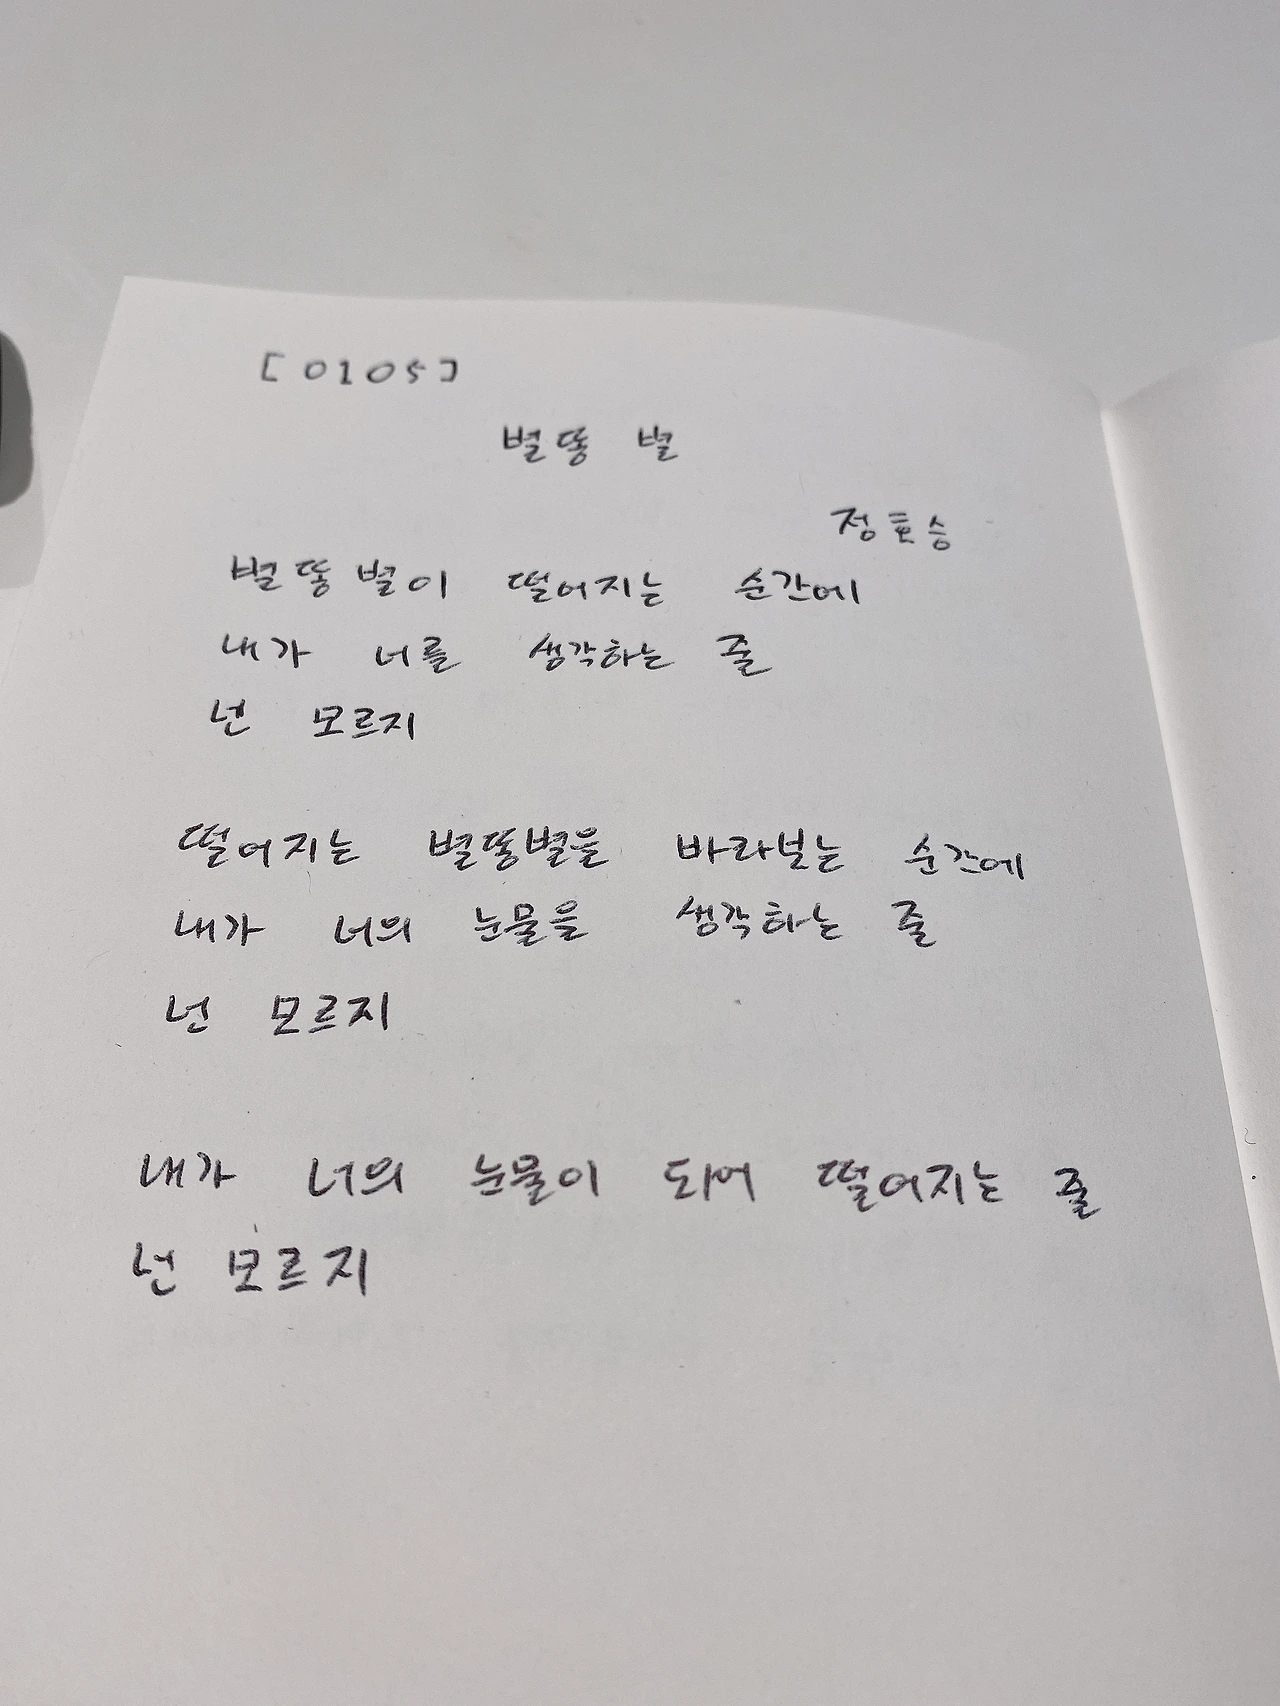 [0105]
별똥 별
정호승
별똥별이 떨어지는 순간에
내가 너를 생각하는 줄
넌 모르지
떨어지는 별똥별을 바라보는 순간에
내가 너의 눈물을 생각하는 줄
넌 모르지
내가 너의 눈물이 되어 떨어지는 줄
넌 모르지